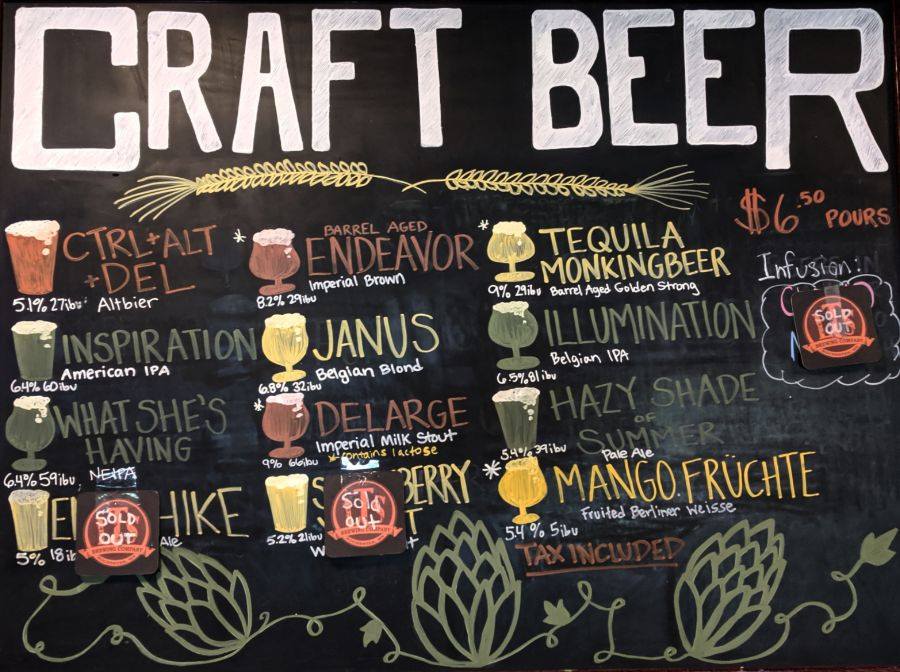 CRAFT BEER
$6.50 POURS
CTRL+ALT
+DEL
5.1% 27ibu Altbier
INSPIRATION
American IPA
6.4% 60ibu
WHAT SHE'S
HAVING
6.4% 59ibu NEIPA
HIKE
SOLD
OUT
BREWING COMPANY
5% 18ib Ale
* BARREL AGED
ENDEAVOR
Imperial Brown
8.2% 29ibu
JANUS
Belgian Blond
6.8% 32ibu
* DELARGE
Imperial Milk Stout
* contains lactose
9% 66ibu
BERRY
SOLD
OUT
BREWING COMPANY
5.2% 21ibu
* TEQUILA
MONKINGBEER
9% 29ibu Barrel Aged Golden Strong
ILLUMINATION
Belgian IPA
6.5% 81ibu
HAZY SHADE
OF
SUMMER
5.4% 39ibu Pale Ale
* MANGO FRÜCHTE
Fruited Berliner Weisse
5.4% 5ibu
TAX INCLUDED
Infusion:
SOLD
OUT
BREWING COMPANY